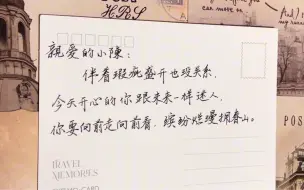 親爱的小陳：
伴着瑕疵盛开也没关系，
今天开心的你跟未来一样迷人，
你要向前走向前看，缤纷烂漫拥春山。
TRAVEL
MEMORIES